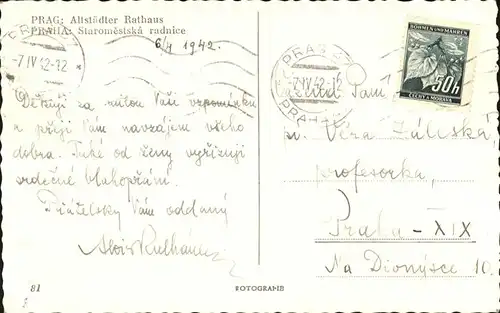 PRAG: Altstädter Rathaus
PRAHA: Staroměstská radnice
6/4 1942.
-7.IV 42-12
Děkuji za milou Vaši vzpomínku
a přeji Vám navzájem všeho
dobra. Také od ženy vyřizuji
srdečné blahopřání.
Přátelsky Vám oddaný
81
FOTOGRAFIE
PRAG
-7.IV 42
PRAHA
BÖHMEN UND MÄHREN
50h
ČECHY A MORAVA
Paní
Věra Záleská,
profesorka,
Praha - XIX
Na Dionýsce 10.